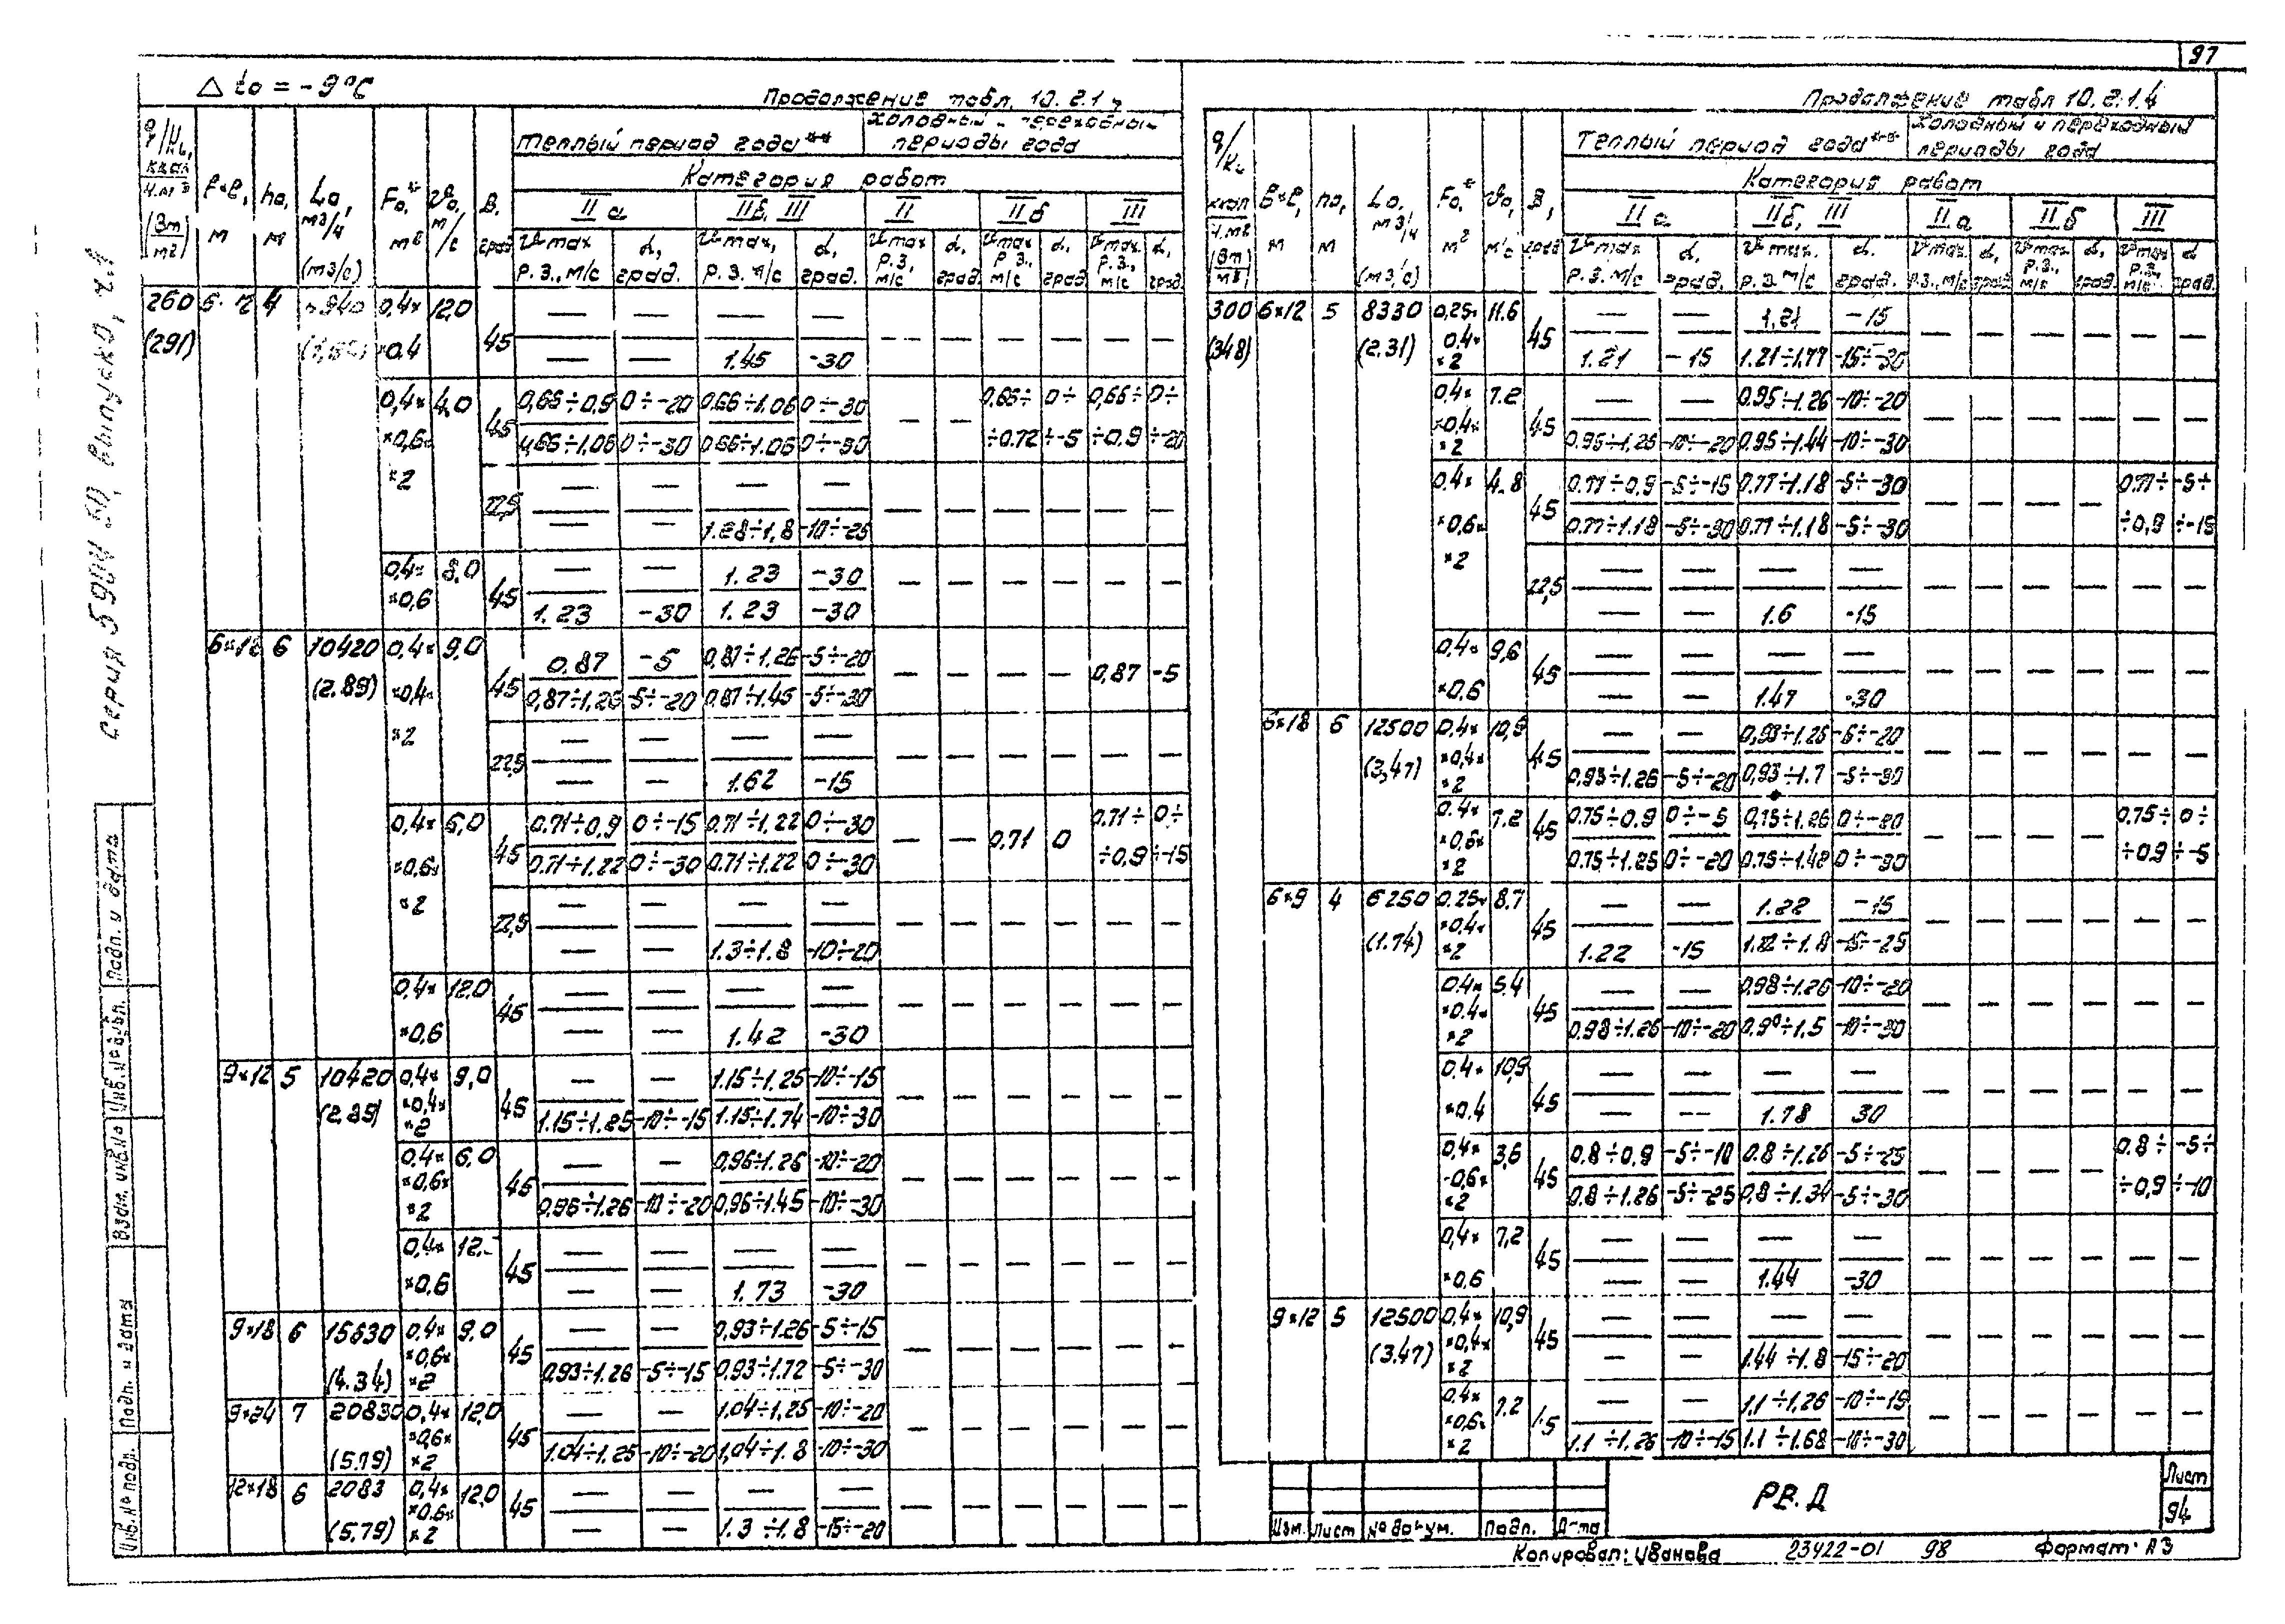 97
Δ to = -9°С
Продолжение табл. 10.2.1
Продолжение табл 10.2.1.4
Серия 5.904-50, выпуск 0, ч.1
q/Hс, ккал/ч.м³ (Вт/м²) | B×ℓ, м | ho, м | Lo, м³/ч (м³/с) | Fo,* м² | Vo, м/с | β, град
теплый период года** | холодный и переходный периоды года
Категория работ
IIа | IIб, III | II | IIб | III
Vmax р.з., м/с | α, град. | Vmax, р.з. м/с | α, град. | Vmax р.з., м/с | α, град. | Vmax р.з., м/с | α, град | Vmax. р.з., м/с | α, град.
260 (291) | 4 | 0,4× ×0,4 | 12,0 | 45 | — | — | — | —
— | — | 1.45 | -30
0,4× ×0,6× ×2 | 4,0 | 45 | 0,66÷0,9 | 0÷-20 | 0.66÷1.06 | 0÷-30 | — | — | 0,66÷ ÷0.72 | 0÷ ÷-5 | 0,66÷ ÷0.9 | 0÷ ÷-20
0,66÷1,06 | 0÷-30 | 0.66÷1.06 | 0÷-30
22,5 | — | — | — | —
— | — | 1.28÷1,8 | -10÷-25
0,4× ×0,6 | 8,0 | 45 | — | — | 1.23 | -30 | — | — | — | — | — | —
1.23 | -30 | 1.23 | -30
6×18 | 6 | 10420 (2.89) | 0,4× ×0,4× ×2 | 9,0 | 45 | 0,87 | -5 | 0,87÷1,26 | -5÷-20 | — | — | — | — | 0,87 | -5
0,87÷1,26 | -5÷-20 | 0,87÷1.45 | -5÷-30
22,5 | — | — | — | — | — | — | — | — | — | —
— | — | 1.62 | -15
0,4× ×0,6× ×2 | 6,0 | 45 | 0.71÷0,9 | 0÷-15 | 0.71÷1,22 | 0÷-30 | — | — | 0,71 | 0 | 0.71÷ ÷0,9 | 0÷ ÷-15
0.71÷1.22 | 0÷-30 | 0.71÷1.22 | 0÷-30
22,5 | — | — | — | — | — | — | — | — | — | —
— | — | 1.3÷1.8 | -10÷-20
0,4× ×0,6 | 12,0 | 45 | — | — | — | — | — | — | — | — | — | —
— | — | 1.42 | -30
9×12 | 5 | 10420 (2.89) | 0,4× ×0,4× ×2 | 9,0 | 45 | — | — | 1.15÷1.25 | -10÷-15 | — | — | — | — | — | —
1.15÷1.25 | -10÷-15 | 1.15÷1.74 | -10÷-30
0,4× ×0,6× ×2 | 6,0 | 45 | — | — | 0,96÷1.26 | -10÷-20 | — | — | — | — | — | —
0,96÷1.26 | -10÷-20 | 0,96÷1.45 | -10÷-30
0,4× ×0,6 | 12. | 45 | — | — | — | — | — | — | — | — | — | —
— | — | 1.73 | -30
9×18 | 6 | 15630 (4.34) | 0,4× ×0,6× ×2 | 9,0 | 45 | — | — | 0,93÷1.26 | -5÷-15 | — | — | — | — | — | —
0,93÷1.26 | -5÷-15 | 0,93÷1.72 | -5÷-30
9×24 | 7 | 20830 (5.79) | 0,4× ×0,6× ×2 | 12,0 | 45 | — | — | 1.04÷1,25 | -10÷-20 | — | — | — | — | — | —
1.04÷1.25 | -10÷-20 | 1,04÷1.8 | -10÷-30
12×18 | 6 | 2083 (5,79) | 0,4× ×0,6× ×2 | 12,0 | 45 | — | — | — | — | — | — | — | — | — | —
— | — | 1.3÷1.8 | -15÷-20
q/Hс ккал/ч.м² (Вт/м²) | B×ℓ, м | ho, м | Lo, м³/ч (м³/с) | Fo,* м² | Vo, м/с | β, град
Теплый период года** | Холодный и переходный периоды года
Категория работ
IIа | IIб, III | IIа | IIб | III
Vmax р.з., м/с | α, град. | Vmax. р.з. м/с | α. град. | Vmax. р.з., м/с | α, град | Vmax. р.з., м/с | α, град. | Vmax р.з., м/с | α град.
300 (348) | 6×12 | 5 | 8330 (2.31) | 0,25× 0,4× ×2 | 11.6 | 45 | — | — | 1,21 | -15 | — | — | — | — | — | —
1.21 | -15 | 1.21÷1.77 | -15÷-30
0.4× ×0.4× ×2 | 7.2 | 45 | — | — | 0.95÷1.26 | -10÷-20 | — | — | — | — | — | —
0.95÷1,26 | -10÷-20 | 0.95÷1.44 | -10÷-30
0.4× ×0,6× ×2 | 4.8 | 45 | 0.77÷0,9 | -5÷-15 | 0.77÷1.18 | -5÷-30 | — | — | — | — | 0.77÷ ÷0,9 | -5÷ ÷-15
0.77÷1.18 | -5÷-30 | 0.77÷1.18 | -5÷-30
22,5 | — | — | — | — | — | — | — | — | — | —
— | — | 1.6 | -15
0.4× ×0,6 | 9,6 | 45 | — | — | — | — | — | — | — | — | — | —
— | — | 1.47 | -30
6×18 | 6 | 12500 (3,47) | 0.4× ×0,4× ×2 | 10,9 | 45 | — | — | 0,93÷1.26 | -5÷-20 | — | — | — | — | — | —
0,93÷1.26 | -5÷-20 | 0,93÷1.7 | -5÷-30
0.4× ×0,6× ×2 | 7.2 | 45 | 0.75÷0.9 | 0÷-5 | 0,75÷1.26 | 0÷-20 | — | — | — | — | 0.75÷ ÷0.9 | 0÷ ÷-5
0.75÷1.25 | 0÷-20 | 0.75÷1.42 | 0÷-30
6×9 | 4 | 6250 (1.74) | 0.25× ×0,4× ×2 | 8.7 | 45 | — | — | 1.22 | -15 | — | — | — | — | — | —
1.22 | -15 | 1.22÷1.8 | -15÷-25
0.4× ×0.4× ×2 | 5.4 | 45 | — | — | 0.98÷1.26 | -10÷-20 | — | — | — | — | — | —
0.98÷1.26 | -10÷-20 | ÷1.5 | -10÷-30
0.4× ×0.4 | 10,9 | 45 | — | — | — | — | — | — | — | — | — | —
— | — | 1.78 | 30
0,4× ×0,6× ×2 | 3,6 | 45 | 0.8÷0,9 | -5÷-10 | 0.8÷1.26 | -5÷-25 | — | — | — | — | 0.8÷ ÷0,9 | -5÷ ÷-10
0.8÷1.26 | -5÷-25 | 0.8÷1.34 | -5÷-30
0,4× ×0,6 | 7,2 | 45 | — | — | — | — | — | — | — | — | — | —
— | — | 1.44 | -30
9×12 | 5 | 12500 (3.47) | 0,4× ×0,4× ×2 | 10,9 | 45 | — | — | — | — | — | — | — | — | — | —
— | — | 1.44÷1.8 | -15÷-20
0.4× ×0,6× ×2 | 7.2 | 45 | — | — | 1.1÷1,26 | -10÷-15 | — | — | — | — | — | —
1.1÷1,26 | -10÷-15 | 1.1÷1.68 | -10÷-30
Инв.№ подл. | Подп. и дата | Взам. инв.№ | Инв.№ дубл. | Подп. и дата
Изм. Лист № докум. Подп. Дата
РВ.Д
Лист
94
Копировал: Иванова 23422-01 98 Формат А3